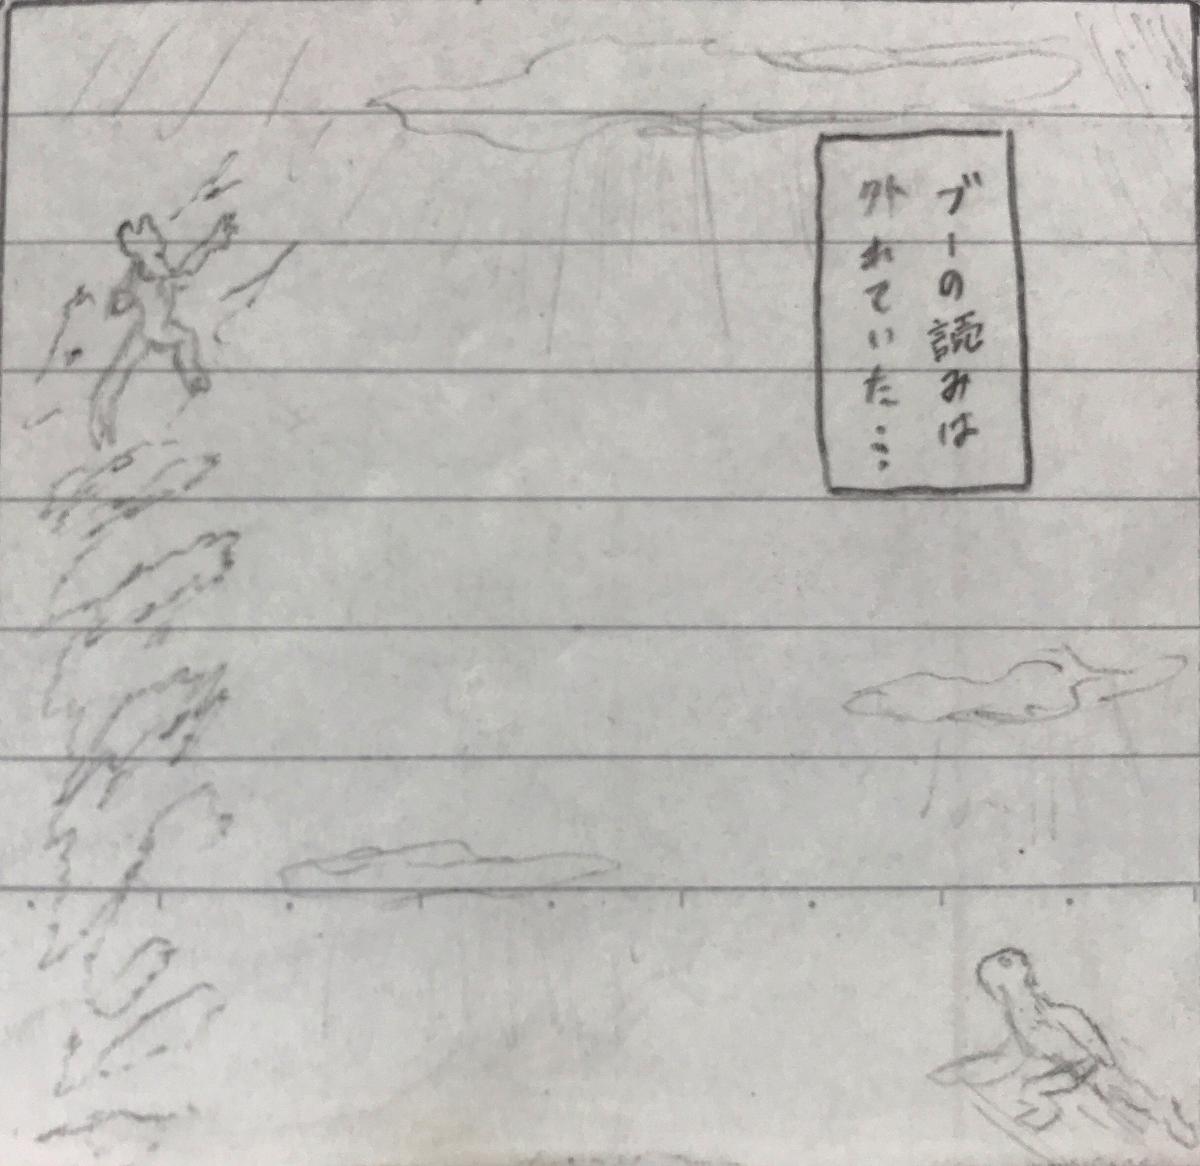 ブーの読みは
外れていた…